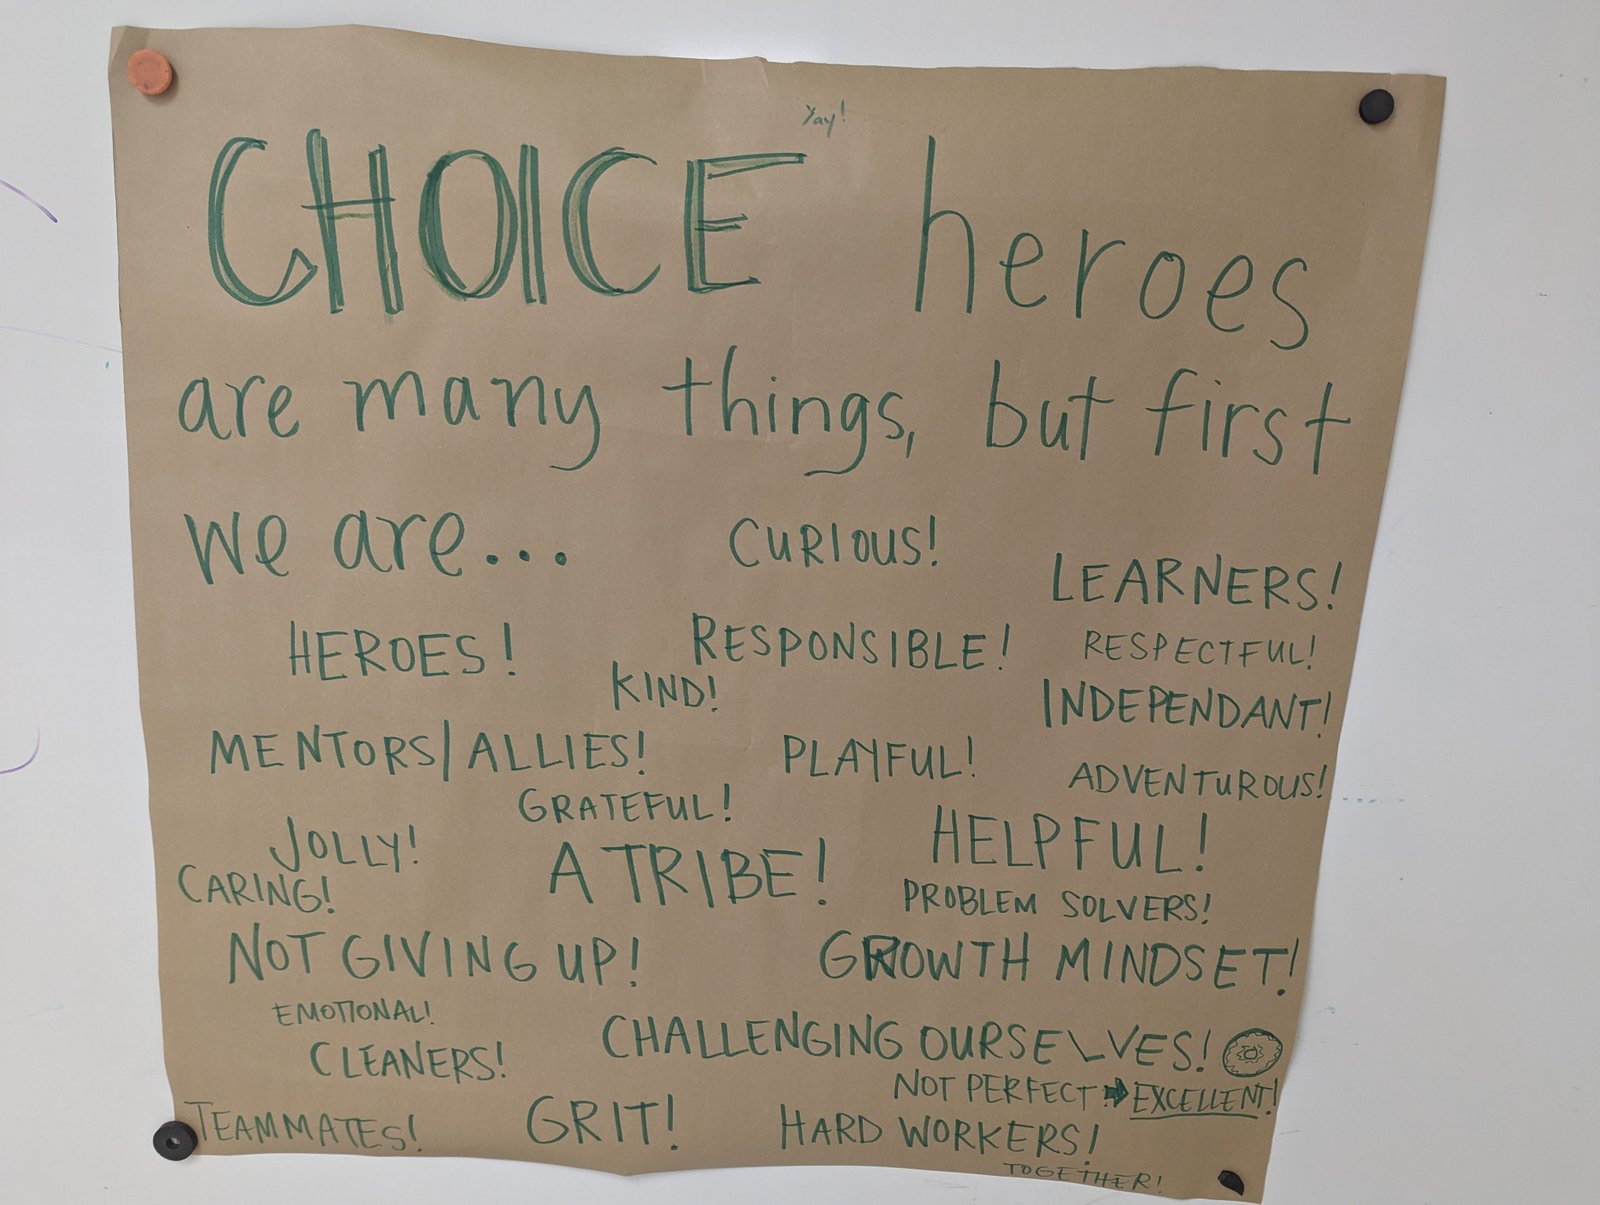 Yay!
CHOICE heroes
are many things, but first
we are...
CURIOUS!
LEARNERS!
HEROES!
RESPONSIBLE!
RESPECTFUL!
KIND!
INDEPENDANT!
MENTORS/ALLIES!
PLAYFUL!
ADVENTUROUS!
GRATEFUL!
JOLLY!
A TRIBE!
HELPFUL!
CARING!
PROBLEM SOLVERS!
NOT GIVING UP!
GROWTH MINDSET!
EMOTIONAL!
CHALLENGING OURSELVES!
CLEANERS!
NOT PERFECT → EXCELLENT!
TEAMMATES!
GRIT!
HARD WORKERS!
TOGETHER!